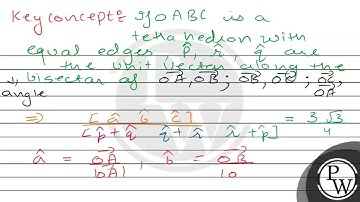 Key concept:- If OABC is a
tetrahedron with
equal edges p̂, r̂, q̂ are
the unit vector along the
bisector of OA→, OB→; OB→, OC→; OC→, OA→
angle
⇒ [â b̂ ĉ] / [p̂+q̂ q̂+r̂ r̂+p̂] = 3√3/4
â = OA→/|OA|, b̂ = OB→/|O
PW